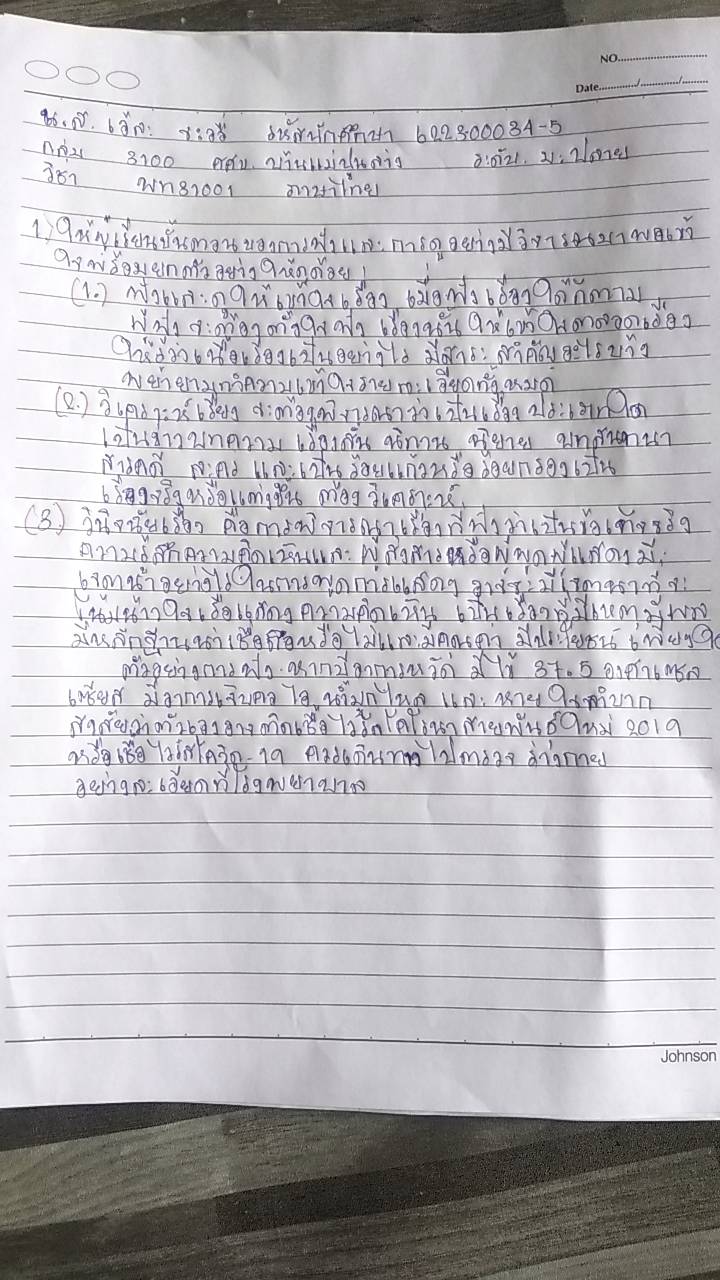 NO.
Date / /
น.ส. เอ๋ละ จะอรี่ รหัสนักศึกษา 622300034-5
กลุ่ม 3100 ศศช. บ้านแม่ปุนล่าง ระดับ ม.ปลาย
วิชา พท31001 ภาษาไทย
1) ให้ผู้เรียนขั้นตอนของการฟังและการดูอย่างมีวิจารณมาพอเข้า
ใจพร้อมยกตัวอย่างให้ดูด้วย
(1.) ฟังและดูให้เข้าใจเรื่อง เมื่อฟังเรื่องใดก็ตาม
ผู้ฟังจะต้องตั้งใจฟังเรื่องนั้นให้เข้าใจตลอดเรื่อง
ให้รู้ว่าเนื้อเรื่องเป็นอย่างไร มีสาระสำคัญอะไรบ้าง
พยายามทำความเข้าใจรายละเอียดทั้งหมด
(2.) วิเคราะห์เรื่อง จะต้องพิจารณาว่าเป็นเรื่องประเภทใด
เป็นข่าวบทความ เรื่องสั้น นิทาน นิยาย บทสนทนา
สารคดี ละคร และเป็นร้อยแก้วหรือร้อยกรองเป็น
เรื่องจริงหรือแต่งขึ้น ต้องวิเคราะห์
(3.) วินิจฉัยเรื่อง คือการพิจารณาเรื่องที่ฟังว่าเป็นข้อเท็จจริง
ความรู้สึกความคิดเห็นและ ผู้ส่งสารหรือผู้พูดผู้แสดงมี
เจตนาอย่างไรในการพูดการแสดง อาจจะมีเจตนาที่จะ
โน้มน้าวใจหรือแสดงความคิดเห็น เป็นเรื่องที่มีเหตุมีผล
มีหลักฐานน่าเชื่อถือหรือไม่และมีคุณค่า มีประโยชน์เพียงใด
ตัวอย่างการฟัง หากมีอาการหวัด มีไข้ 37.5 องศาเซล
เซียส มีอาการเจ็บคอ ไอ น้ำมูกไหล และหายใจลำบาก
สงสัยว่าตัวเองอาจติดเชื้อไวรัสโคโรนาสายพันธุ์ใหม่ 2019
หรือเชื้อไวรัสโควิด-19 ควรเดินทางไปตรวจร่างกาย
อย่างละเอียดที่โรงพยาบาล
Johnson